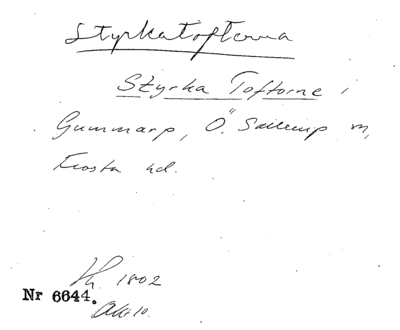 Styrkatofterna
Styrka Toftorne i
Gummarp, Ö. Sallerup sn,
Frosta hd.
1802
Nr 6644.
Akt 10.